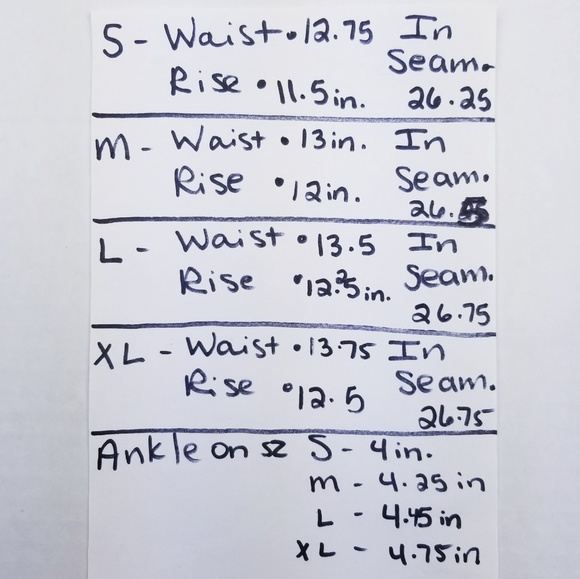 S - Waist • 12.75 In
Seam.
Rise • 11.5 in. 26.25
M - Waist • 13 in. In
Rise • 12 in. Seam.
26.5
L - Waist • 13.5 In
Rise • 12.25 in. Seam.
26.75
XL - Waist • 13.75 In
Rise • 12.5 Seam.
26.75
Ankle on sz S - 4 in.
M - 4.25 in
L - 4.45 in
XL - 4.75 in